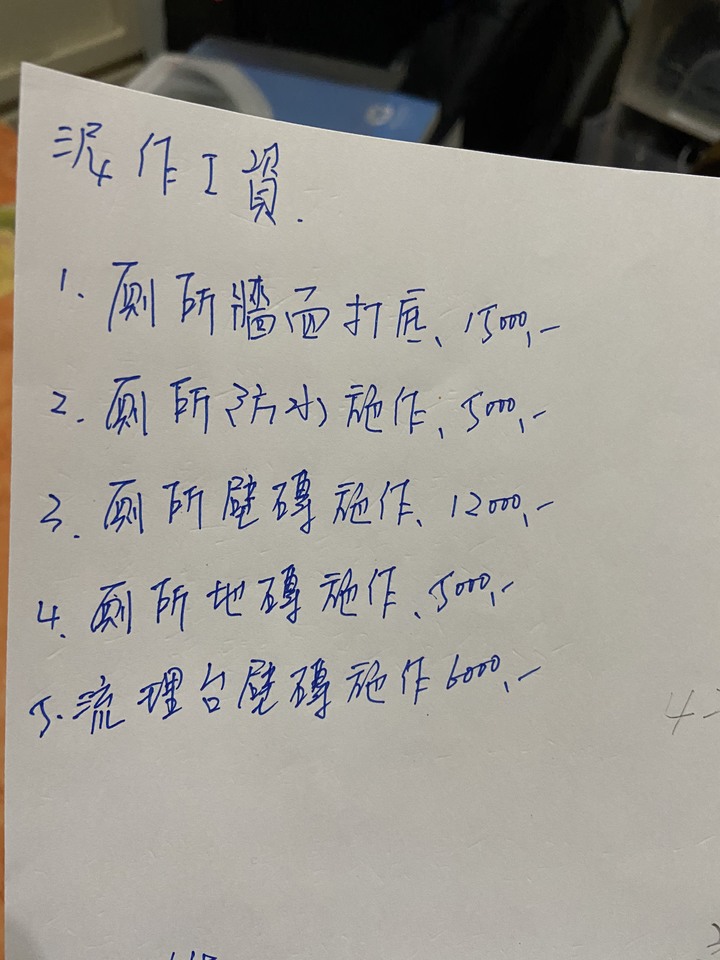 泥作工資.
1. 廁所牆面打底、15000,-
2. 廁所防水施作、5000,-
3. 廁所壁磚施作、12000,-
4. 廁所地磚施作、5000,-
5. 流理台壁磚施作 6000,-